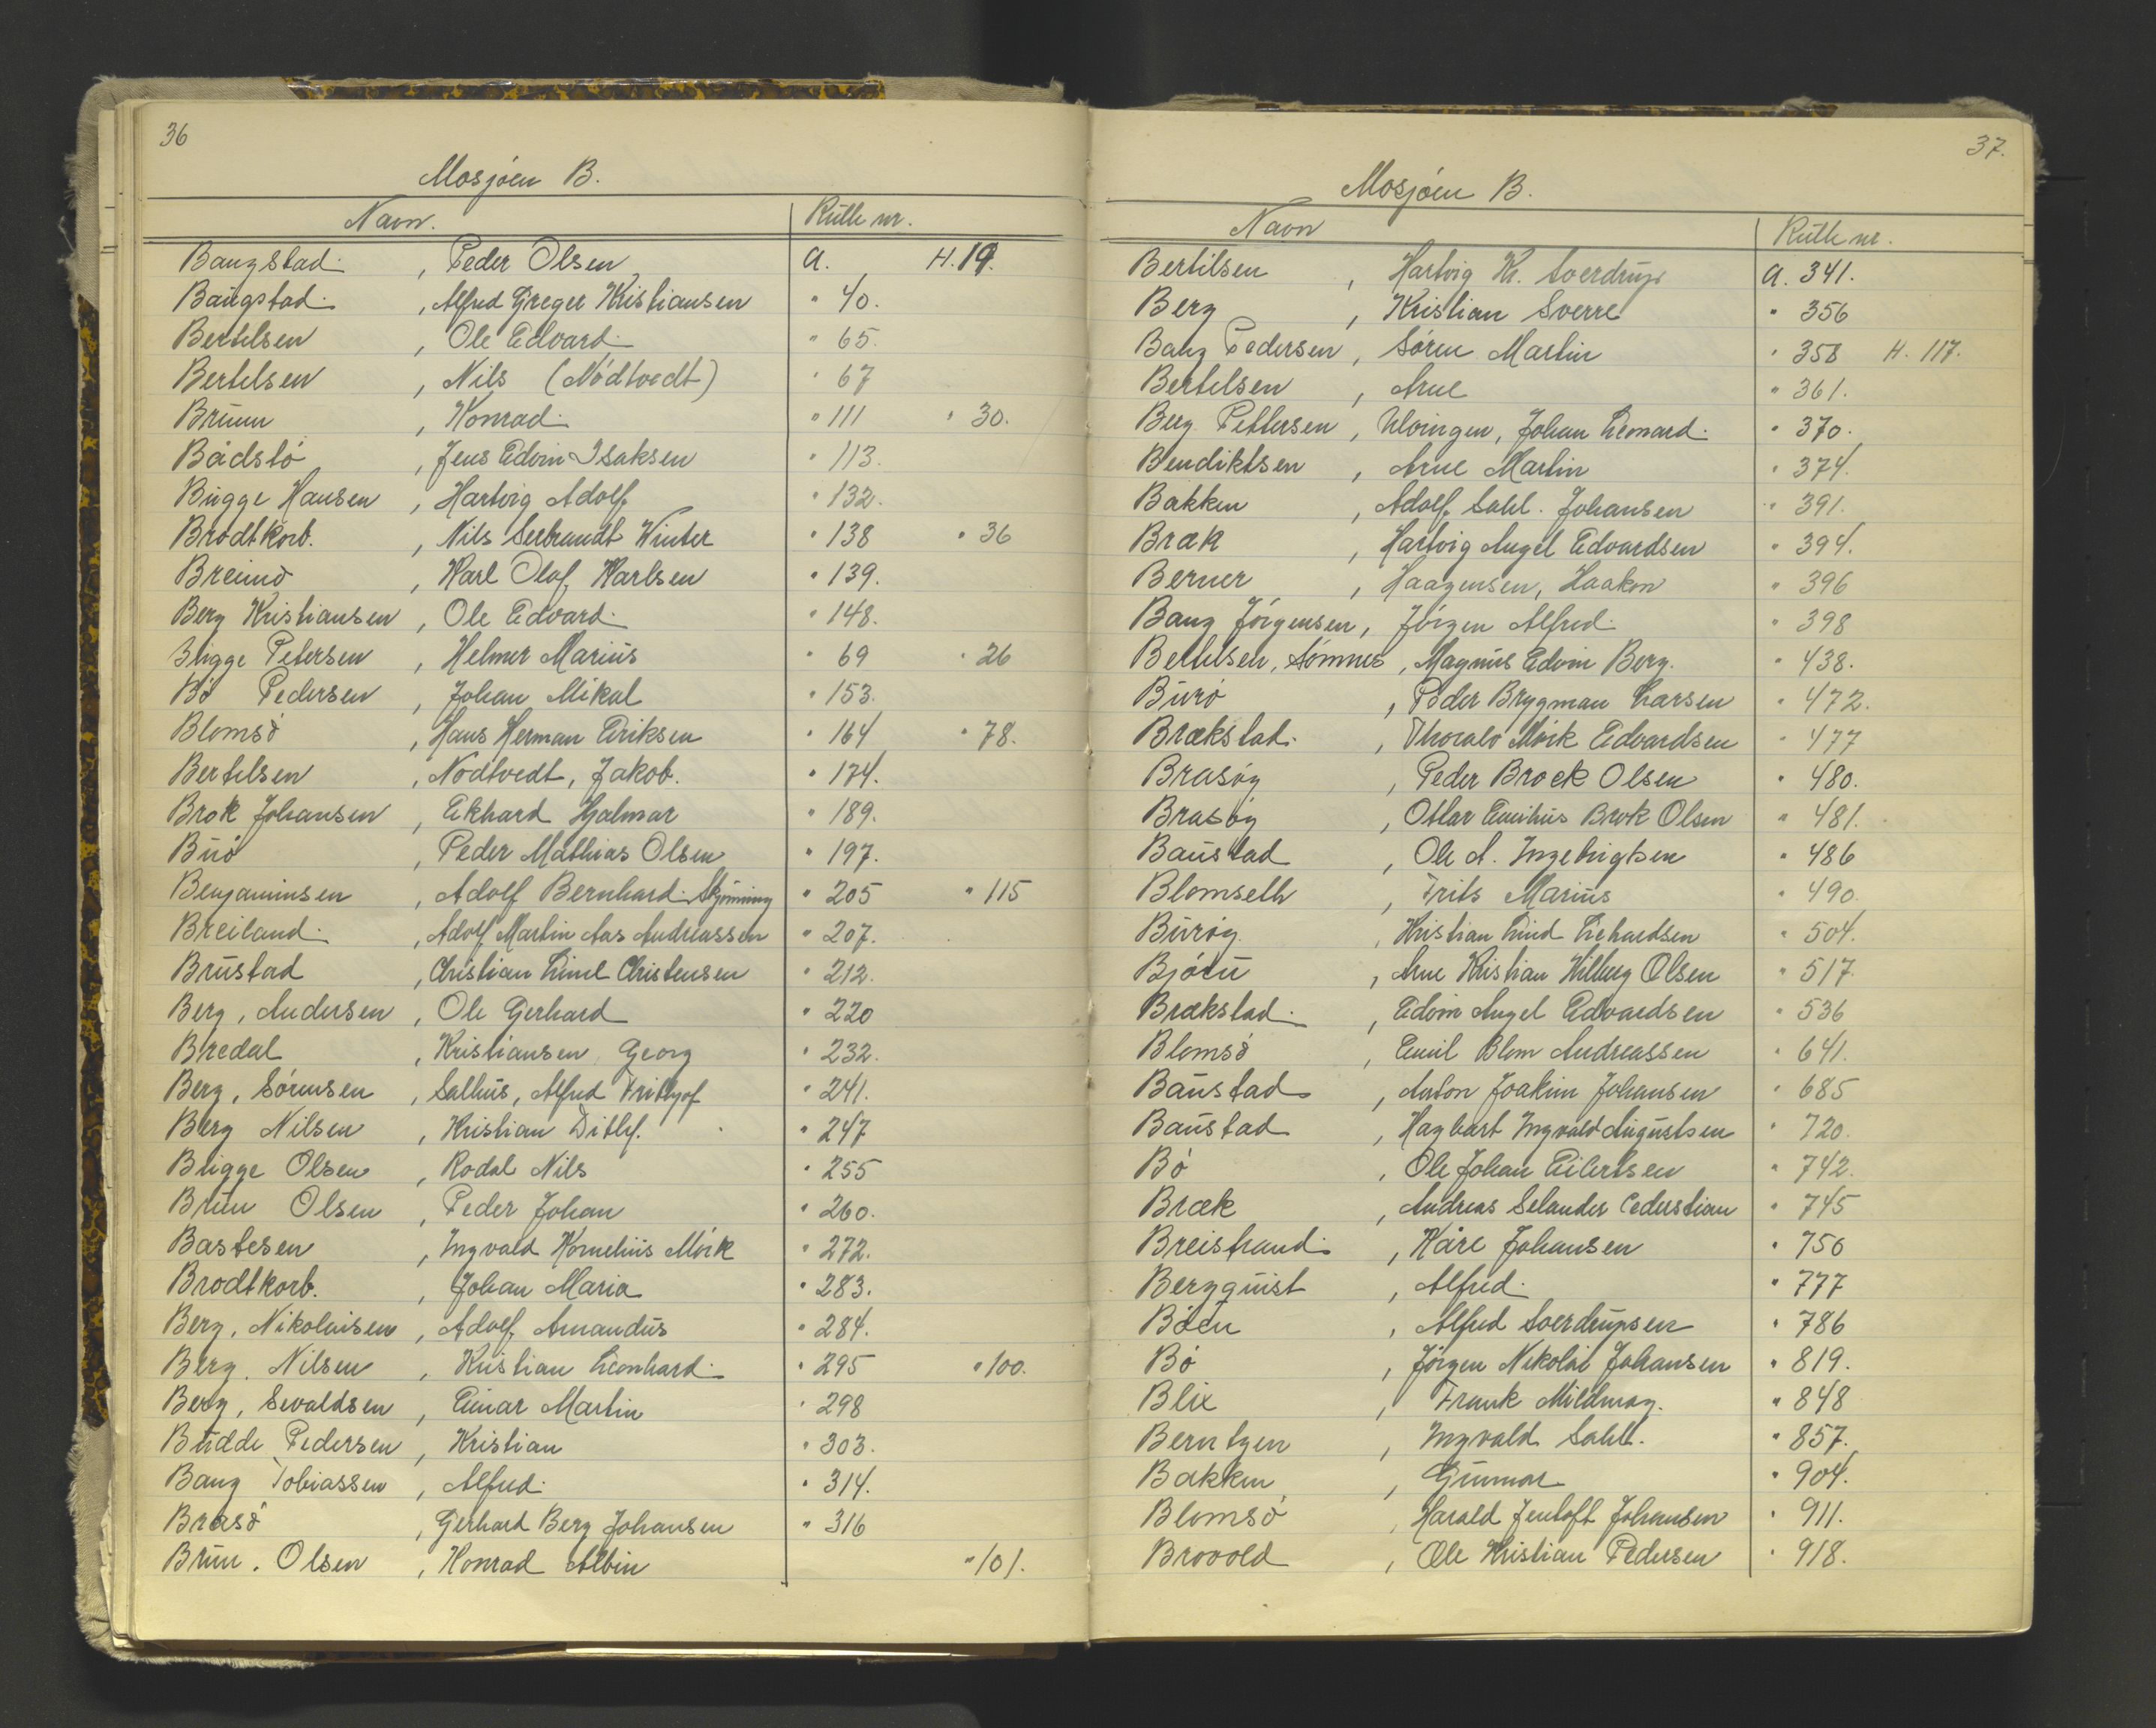 36
Mosjöen B.
Navn. Rulle nr.
Bangstad , Peder Olsen a. H. 19.
Baugstad , Alfred Greger Kristiansen " 40.
Bertelsen , Ole Edvard " 65.
Bertelsen , Nils (Nödtvedt) " 67
Bruun , Konrad " 111 " 30.
Bådstö , Jens Edvin Isaksen " 113.
Bugge Hansen , Hartvig Adolf " 132.
Brodtkorb. , Nils Serbrandt Winter " 138 " 36
Breimo , Karl Olaf Karlsen " 139.
Berg Kristiansen , Ole Edvard " 148.
Bugge Petersen , Helmer Marius " 69 " 26
Bö Pedersen , Johan Mikal " 153.
Blomsö , Hans Herman Eriksen " 164 " 78.
Bertelsen , Nodtvedt, Jakob. " 174.
Brok Johansen , Ekhard Hjalmar " 189.
Buö , Peder Mathias Olsen " 197.
Benjaminsen , Adolf Bernhard Skjönning " 205 " 115
Breiland , Adolf Martin Aas Andreassen " 207.
Brustad , Christian Lind Christensen " 212.
Berg, Andersen , Ole Gerhard " 220
Bredal , Kristiansen Georg " 232.
Berg, Sörensen , Salhus, Alfred Fritjof " 241.
Berg Nilsen , Kristian Ditlef. " 247
Bugge Olsen , Rodal Nils " 255
Bruu Olsen , Peder Johan " 260.
Bastesen , Ingvald Kornelius Mörk " 272.
Brodtkorb. , Johan Maria " 283.
Berg, Nikolaisen , Adolf Amandus " 284.
Berg. Nilsen , Kristian Leonhard " 295 " 100.
Berg, Sevaldsen , Einar Martin " 298
Budde Pedersen , Kristian " 303.
Bang Tobiassen , Alfred " 314.
Brasö , Gerhard Berg Johansen " 316
Bruu. Olsen , Konrad Albin " 101.
37.
Mosjöen B.
Navn Rulle nr.
Bertilsen , Hartvig Kr. Sverdrup a. 341.
Berg , Kristian Sverre " 356
Bang Pedersen , Sören Martin " 358 H. 117.
Bertelsen , Arne " 361.
Berg Pettersen , Ulvingen, Johan Leonard " 370.
Bendiktsen , Arne Martin " 374.
Bakken , Adolf Sahl. Johansen " 391.
Bræk , Hartvig Angel Edvardsen " 394.
Berner , Haagensen, Haakon " 396
Bang Jörgensen , Jörgen Alfred " 398
Bertelsen, Sömnes , Magnus Edvin Berg. " 438.
Burö , Peder Brygman Larsen " 472.
Brækstad , Thoralv Mörk Edvardsen " 477
Brasöy , Peder Brock Olsen " 480.
Brasöy , Ottar Emilius Brok Olsen " 481.
Baustad , Ole A. Ingebrigtsen " 486
Blomseth , Frits Marius " 490.
Buröy , Kristian Lind Lichardsen " 504.
Björu , Arne Kristian Wilberg Olsen " 517.
Brækstad , Edvin Angel Edvardsen " 536
Blomsö , Emil Blom Andreassen " 641.
Baustad , Anton Joakim Johansen " 685
Baustad , Hagbart Ingvald Augustsen " 720.
Bö , Ole Johan Eilertsen " 742.
Bræk , Andreas Selander Cederstian " 745
Breistrand , Kåre Johansen " 750
Bergquist , Alfred " 777
Böen , Alfred Sverdrupsen " 786
Bö , Jörgen Nikolai Johansen " 819.
Blix , Frank Mildmay. " 848
Berntzen , Ingvald Sahl. " 857.
Bakken , Gunnar " 904.
Blomsö , Harald Jentoft Johansen " 911.
Brovold , Ole Kristian Pedersen " 918.